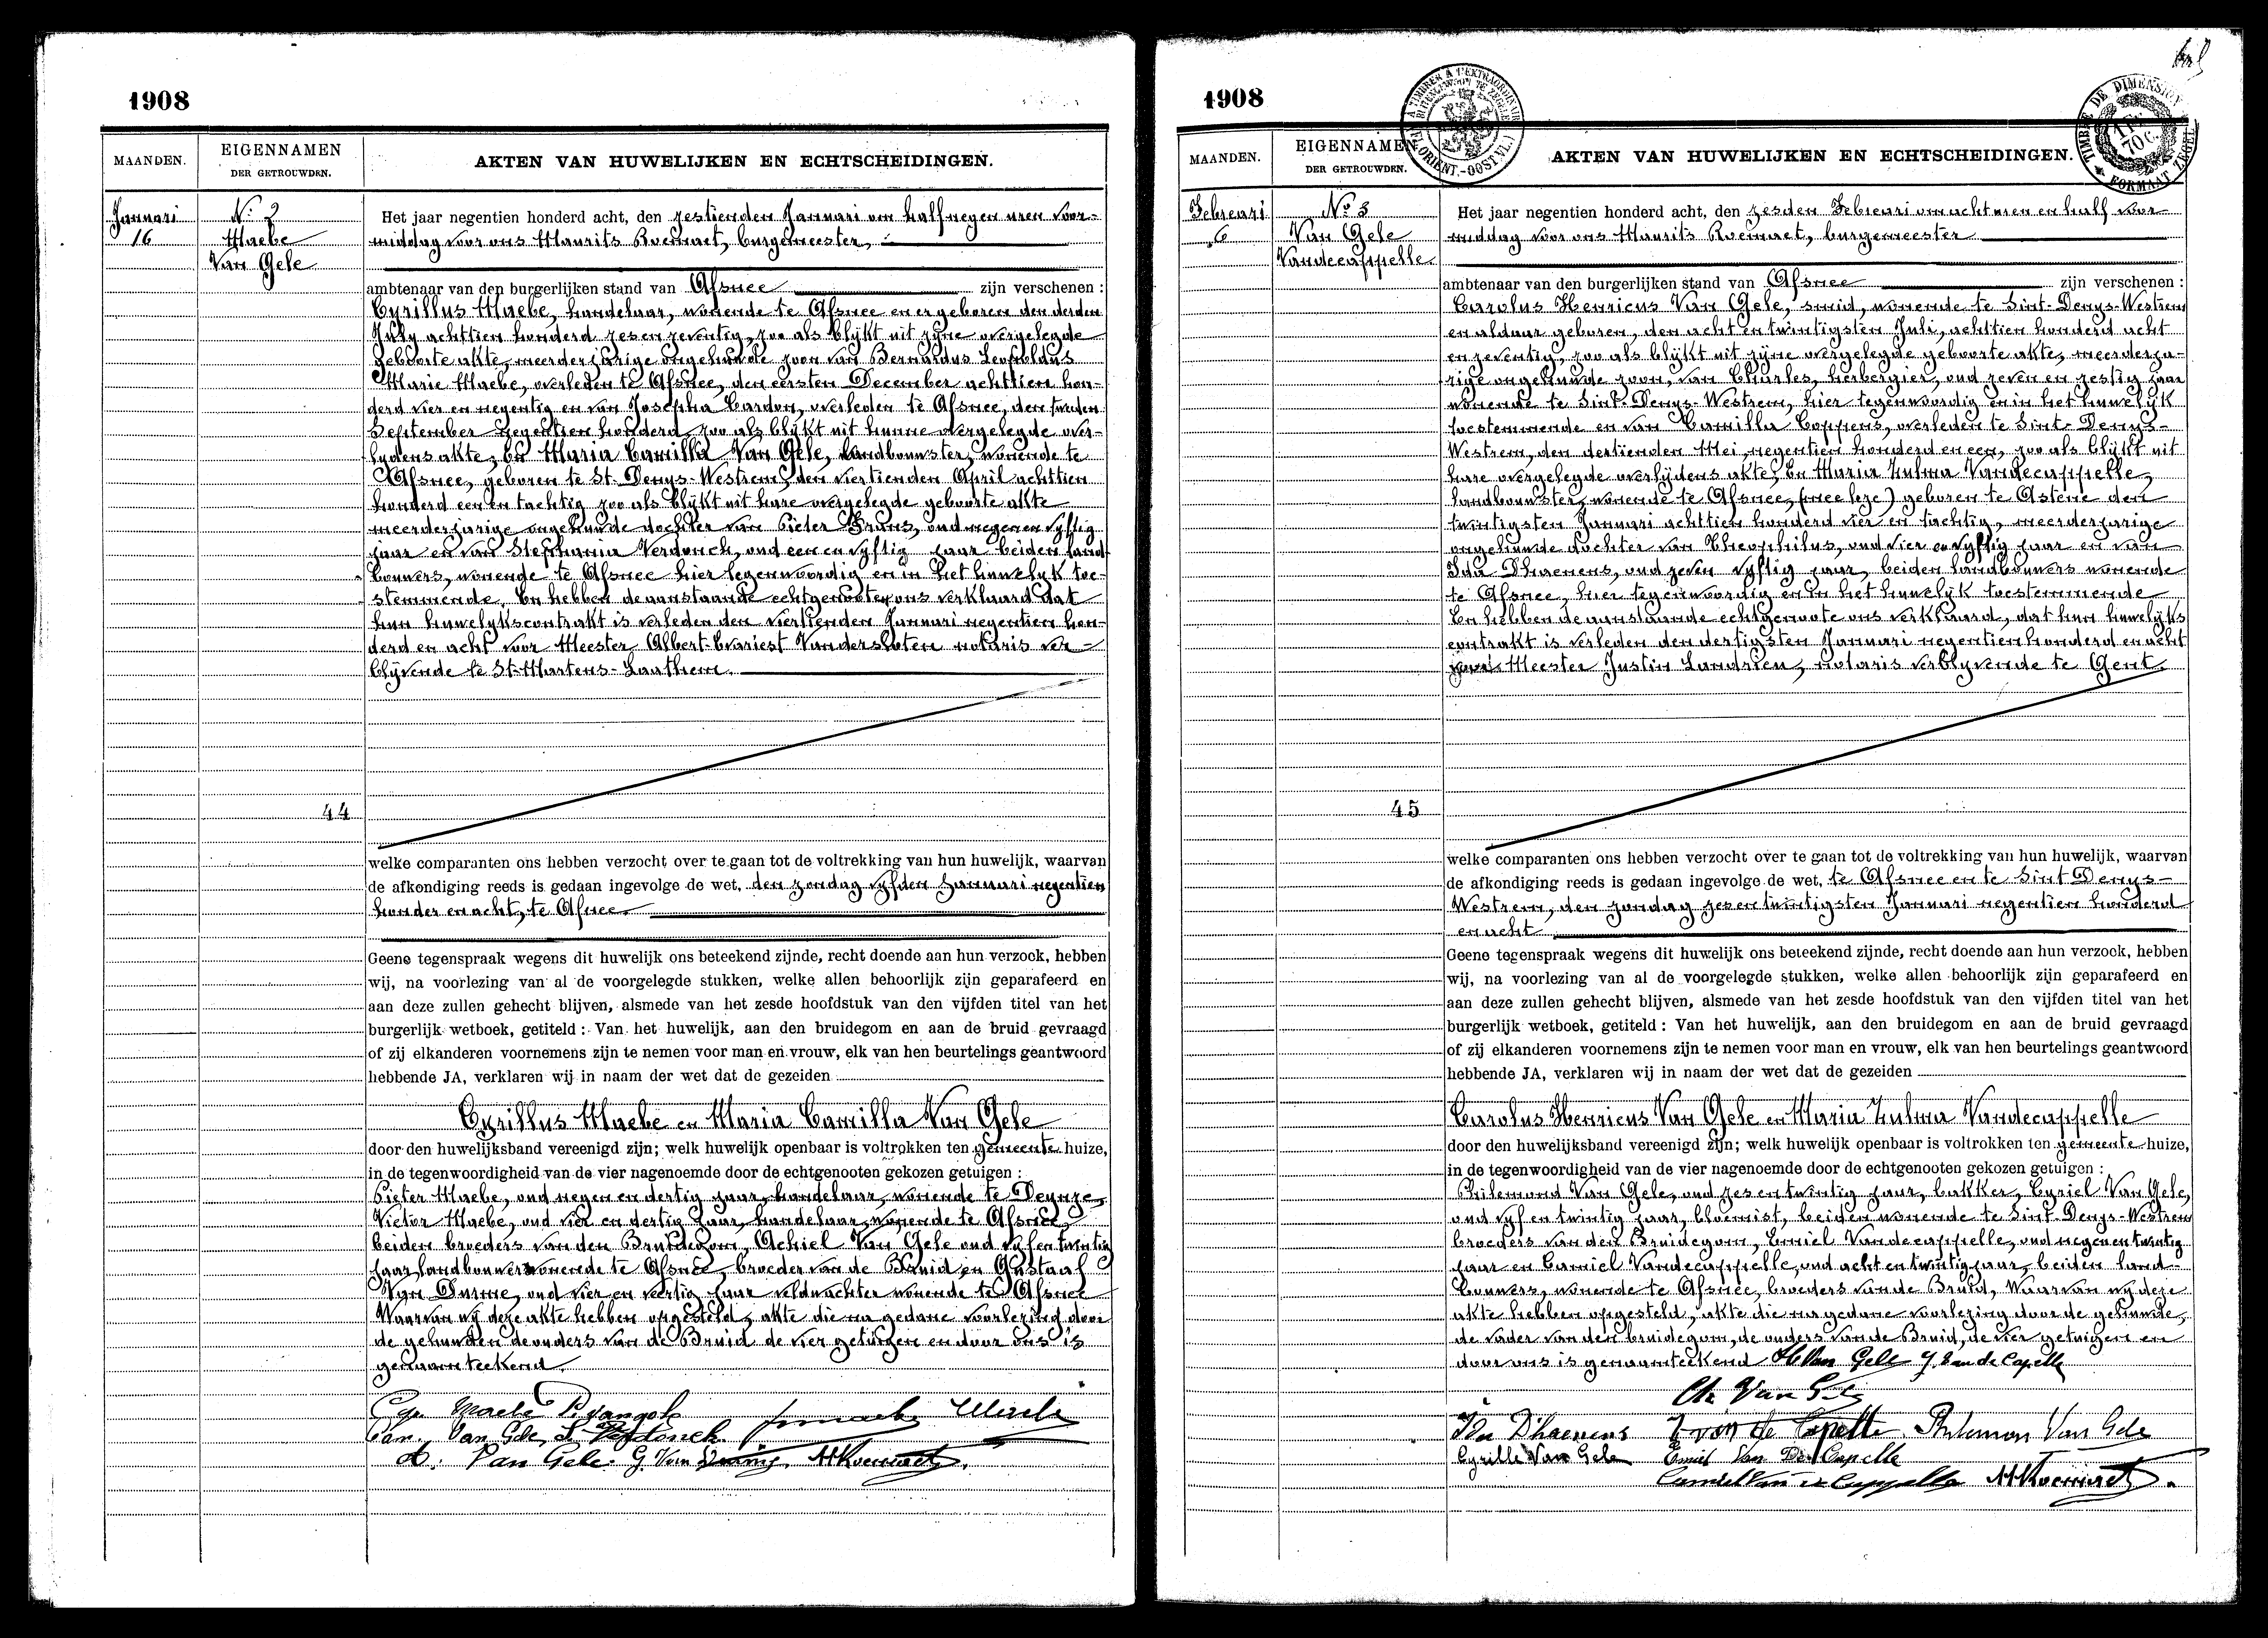 1908
MAANDEN.
EIGENNAMEN
DER GETROUWDEN.
AKTEN VAN HUWELIJKEN EN ECHTSCHEIDINGEN.
Januari
16
N° 2
Maebe
Van Gele
Het jaar negentien honderd acht, den zestienden Januari om half negen uren voor-
middag voor ons Maurits Roemaet, burgemeester,
ambtenaar van den burgerlijken stand van Afsnee zijn verschenen :
Cyrillus Maebe, handelaar, wonende te Afsnee en er geboren den derden
July achttien honderd zes en zeventig, zoo als blijkt uit zijne overgelegde
geboorte akte, meerderjarige ongehuwde zoon van Bernardus Leopoldus
Marie Maebe, overleden te Afsnee, den eersten December achttien hon-
derd vier en negentig en van Josepha Cardon, overleden te Afsnee, den
September negentien honderd, zoo als blijkt uit hunne overgelegde over-
lydens akte, En Maria Camilla Van Gele, landbouwster, wonende te
Afsnee, geboren te St. Denys-Westrem, den viertienden April achttien
honderd een en tachtig zoo als blijkt uit hare overgelegde geboorte akte
meerderjarige ongehuwde dochter van Pieter Frans, oud negen en vyftig
jaar en van Stephania Verdonck, oud een en vyftig jaar beiden land-
bouwers, wonende te Afsnee hier tegenwoordig en in het huwelyk toe-
stemmende. En hebben de aanstaande echtgenooten ons verklaard dat
hun huwelykscontrakt is verleden den viertienden Januari negentien hon-
derd en acht voor Meester Albert-Evariest Vandersloten notaris ver-
blijvende te St-Martens-Laathem.
44
welke comparanten ons hebben verzocht over te gaan tot de voltrekking van hun huwelijk, waarvan
de afkondiging reeds is gedaan ingevolge de wet, den zondag vyfden Januari negentien
honder en acht, te Afsnee.
Geene tegenspraak wegens dit huwelijk ons beteekend zijnde, recht doende aan hun verzoek, hebben
wij, na voorlezing van al de voorgelegde stukken, welke allen behoorlijk zijn geparafeerd en
aan deze zullen gehecht blijven, alsmede van het zesde hoofdstuk van den vijfden titel van het
burgerlijk wetboek, getiteld : Van het huwelijk, aan den bruidegom en aan de bruid gevraagd
of zij elkanderen voornemens zijn te nemen voor man en vrouw, elk van hen beurtelings geantwoord
hebbende JA, verklaren wij in naam der wet dat de gezeiden
Cyrillus Maebe en Maria Camilla Van Gele
door den huwelijksband vereenigd zijn; welk huwelijk openbaar is voltrokken ten gemeente huize,
in de tegenwoordigheid van de vier nagenoemde door de echtgenooten gekozen getuigen :
Pieter Maebe, oud negen en dertig jaar, handelaar, wonende te Deynze,
Victor Maebe, oud vier en dertig jaar, handelaar, wonende te Afsnee
beiden broeders van den Bruidegom, Achiel Van Gele oud vyf en twintig
jaar landbouwer wonende te Afsnee, broeder van de Bruid en Gustaaf
Van Durme, oud vier en veertig jaar veldwachter wonende te Afsnee
Waarvan wij deze akte hebben opgesteld, akte die na gedane voorlezing door
de gehuwden de ouders van de Bruid de vier getuigen en door ons is
genaamteekend.
Cyr. Maebe P. Vangele
Cam. Van Gele, S. Verdonck
A. Van Gele. G. Van Durme M Roemaet.
1908
MAANDEN.
EIGENNAMEN
DER GETROUWDEN.
AKTEN VAN HUWELIJKEN EN ECHTSCHEIDINGEN.
TIMBRE DE DIMENSION
FORMAAT ZEGEL
Februari
6
N° 3
Van Gele
Vandecappelle
Het jaar negentien honderd acht, den zesden Februari om acht uren en half voor
middag voor ons Maurits Roemaet, burgemeester
ambtenaar van den burgerlijken stand van Afsnee zijn verschenen :
Carolus Henricus Van Gele, smid, wonende te Sint-Denys-Westrem
en aldaar geboren, den acht en twintigsten Juli, achttien honderd acht
en zeventig, zoo als blijkt uit zijne overgelegde geboorte akte, meerderja-
rige ongehuwde zoon, van Charles, herbergier, oud zeven en zestig jaar
wonende te Sint-Denys-Westrem, hier tegenwoordig en in het huwelyk
toestemmende en van Camilla Coppens, overleden te Sint-Denys-
Westrem, den dertienden Mei, negentien honderd en een, zoo als blijkt uit
hare overgelegde overlijdens akte, En Maria Zulma Vandecappelle,
landbouwster, wonende te Afsnee, geboren te Astene den
twintigsten Januari achttien honderd vier en tachtig, meerderjarige
ongehuwde dochter van Theophilus, oud vier en vyftig jaar en van
Ida Dhaenens, oud zeven vyftig jaar, beiden landbouwers wonende
te Afsnee, hier tegenwoordig en in het huwelyk toestemmende
En hebben de aanstaande echtgenoote ons verklaard, dat hun huwelyks
contrakt is verleden den dertigsten Januari negentien honderd en acht
voor Meester Justin Landrien, notaris verblyvende te Gent.
45
welke comparanten ons hebben verzocht over te gaan tot de voltrekking van hun huwelijk, waarvan
de afkondiging reeds is gedaan ingevolge de wet, te Afsnee en te Sint Denys-
Westrem, den zondag zes en twintigsten Januari negentien honderd
en acht
Geene tegenspraak wegens dit huwelijk ons beteekend zijnde, recht doende aan hun verzoek, hebben
wij, na voorlezing van al de voorgelegde stukken, welke allen behoorlijk zijn geparafeerd en
aan deze zullen gehecht blijven, alsmede van het zesde hoofdstuk van den vijfden titel van het
burgerlijk wetboek, getiteld : Van het huwelijk, aan den bruidegom en aan de bruid gevraagd
of zij elkanderen voornemens zijn te nemen voor man en vrouw, elk van hen beurtelings geantwoord
hebbende JA, verklaren wij in naam der wet dat de gezeiden
Carolus Henricus Van Gele en Maria Zulma Vandecappelle
door den huwelijksband vereenigd zijn; welk huwelijk openbaar is voltrokken ten gemeente huize,
in de tegenwoordigheid van de vier nagenoemde door de echtgenooten gekozen getuigen :
Philemond Van Gele, oud zes en twintig jaar, bakker, Cyriel Van Gele,
oud vyf en twintig jaar, bloemist, beiden wonende te Sint-Denys-Westrem
broeders van den Bruidegom, Emiel Vandecappelle, oud negen en twintig
jaar en Camiel Vandecappelle, oud acht en twintig jaar, beiden land-
bouwers, wonende te Afsnee, broeders van de Bruid, Waarvan wy deze
akte hebben opgesteld, akte die na gedane voorlezing door de gehuwde,
de vader van den bruidegom, de ouders van de Bruid, de vier getuigen en
door ons is genaamteekend H Van Gele Z. Van de Capelle
Ch Van Gele
Ida D'haenens T van de Capelle Philemon Van Gele
Cyrille Van Gele Emiel Van De Capelle
Camiel Van de Cappelle M Roemaet.